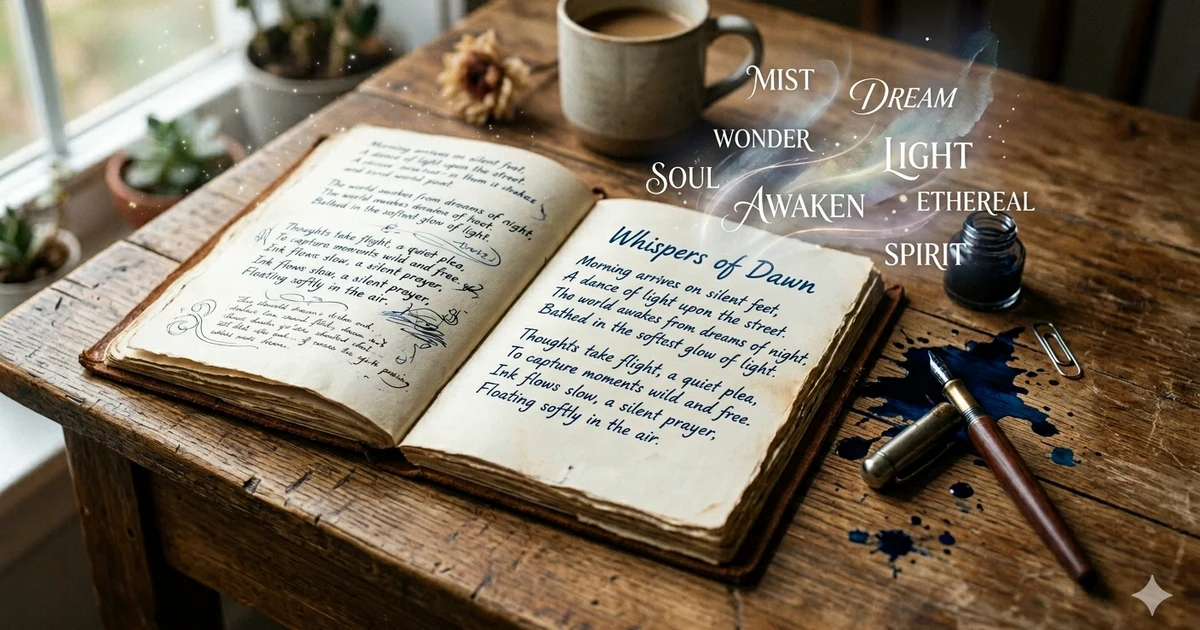 Morning arrives on silent feet,
A dance of light upon the street
The world awakes from dreams of night,
Bathed in the softest glow of light.
Thoughts take flight, a quiet plea,
To capture moments wild and free.
Ink flows slow, a silent prayer,
Ink flows slow, a silent prayer,
Floating softly in the air.
Whispers of Dawn
Morning arrives on silent feet,
A dance of light upon the street.
The world awakes from dreams of night,
Bathed in the softest glow of light.
Thoughts take flight, a quiet plea,
To capture moments wild and free.
Ink flows slow, a silent prayer,
Floating softly in the air.
MIST
DREAM
WONDER
LIGHT
SOUL
AWAKEN
ETHEREAL
SPIRIT